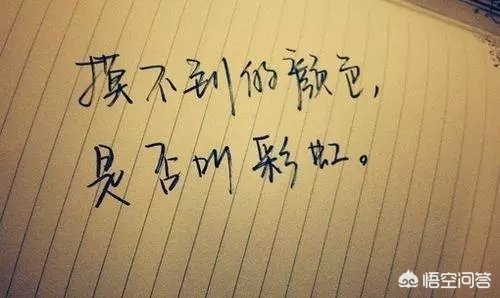 摸不到的颜色，
是否叫彩虹。
悟空问答